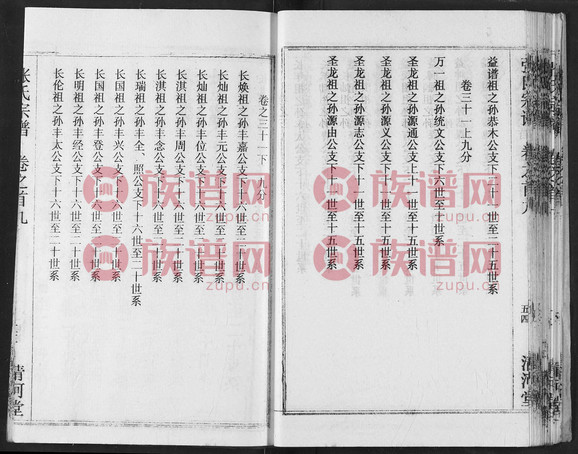 益谱祖之孙恭木公支下十六世至二十五世系
卷三十一上九分
万一祖之孙统文公支下六世至十世系
圣龙祖之孙源通公支上十一世至十五世系
圣龙祖之孙源义公支下十一世至十五世系
圣龙祖之孙源志公支下十一世至十五世系
圣龙祖之孙源由公支下十一世至十五世系
五四
清河堂
卷之三十一下 九分
长焕祖之孙丰嘉公支下十六世至二十世系
长灿祖之孙丰元公支下十六世至二十世系
长灿祖之孙丰位公支下十六世至二十世系
长淇祖之孙丰周公支下十六世至二十世系
长淇祖之孙丰念公支下十六世至二十世系
长瑞祖之孙丰全、照公支下十六世至二十世系
长国祖之孙丰兴公支下十六世至二十世系
长国祖之孙丰登公支下十六世至二十世系
长明祖之孙丰经公支下十六世至二十世系
长伦祖之孙丰太公支下十六世至二十世系
张氏宗谱 卷之首九
清河堂
族谱网
zupu.cn
族谱网
zupu.cn
族谱网
zupu.cn
族谱网
zupu.cn